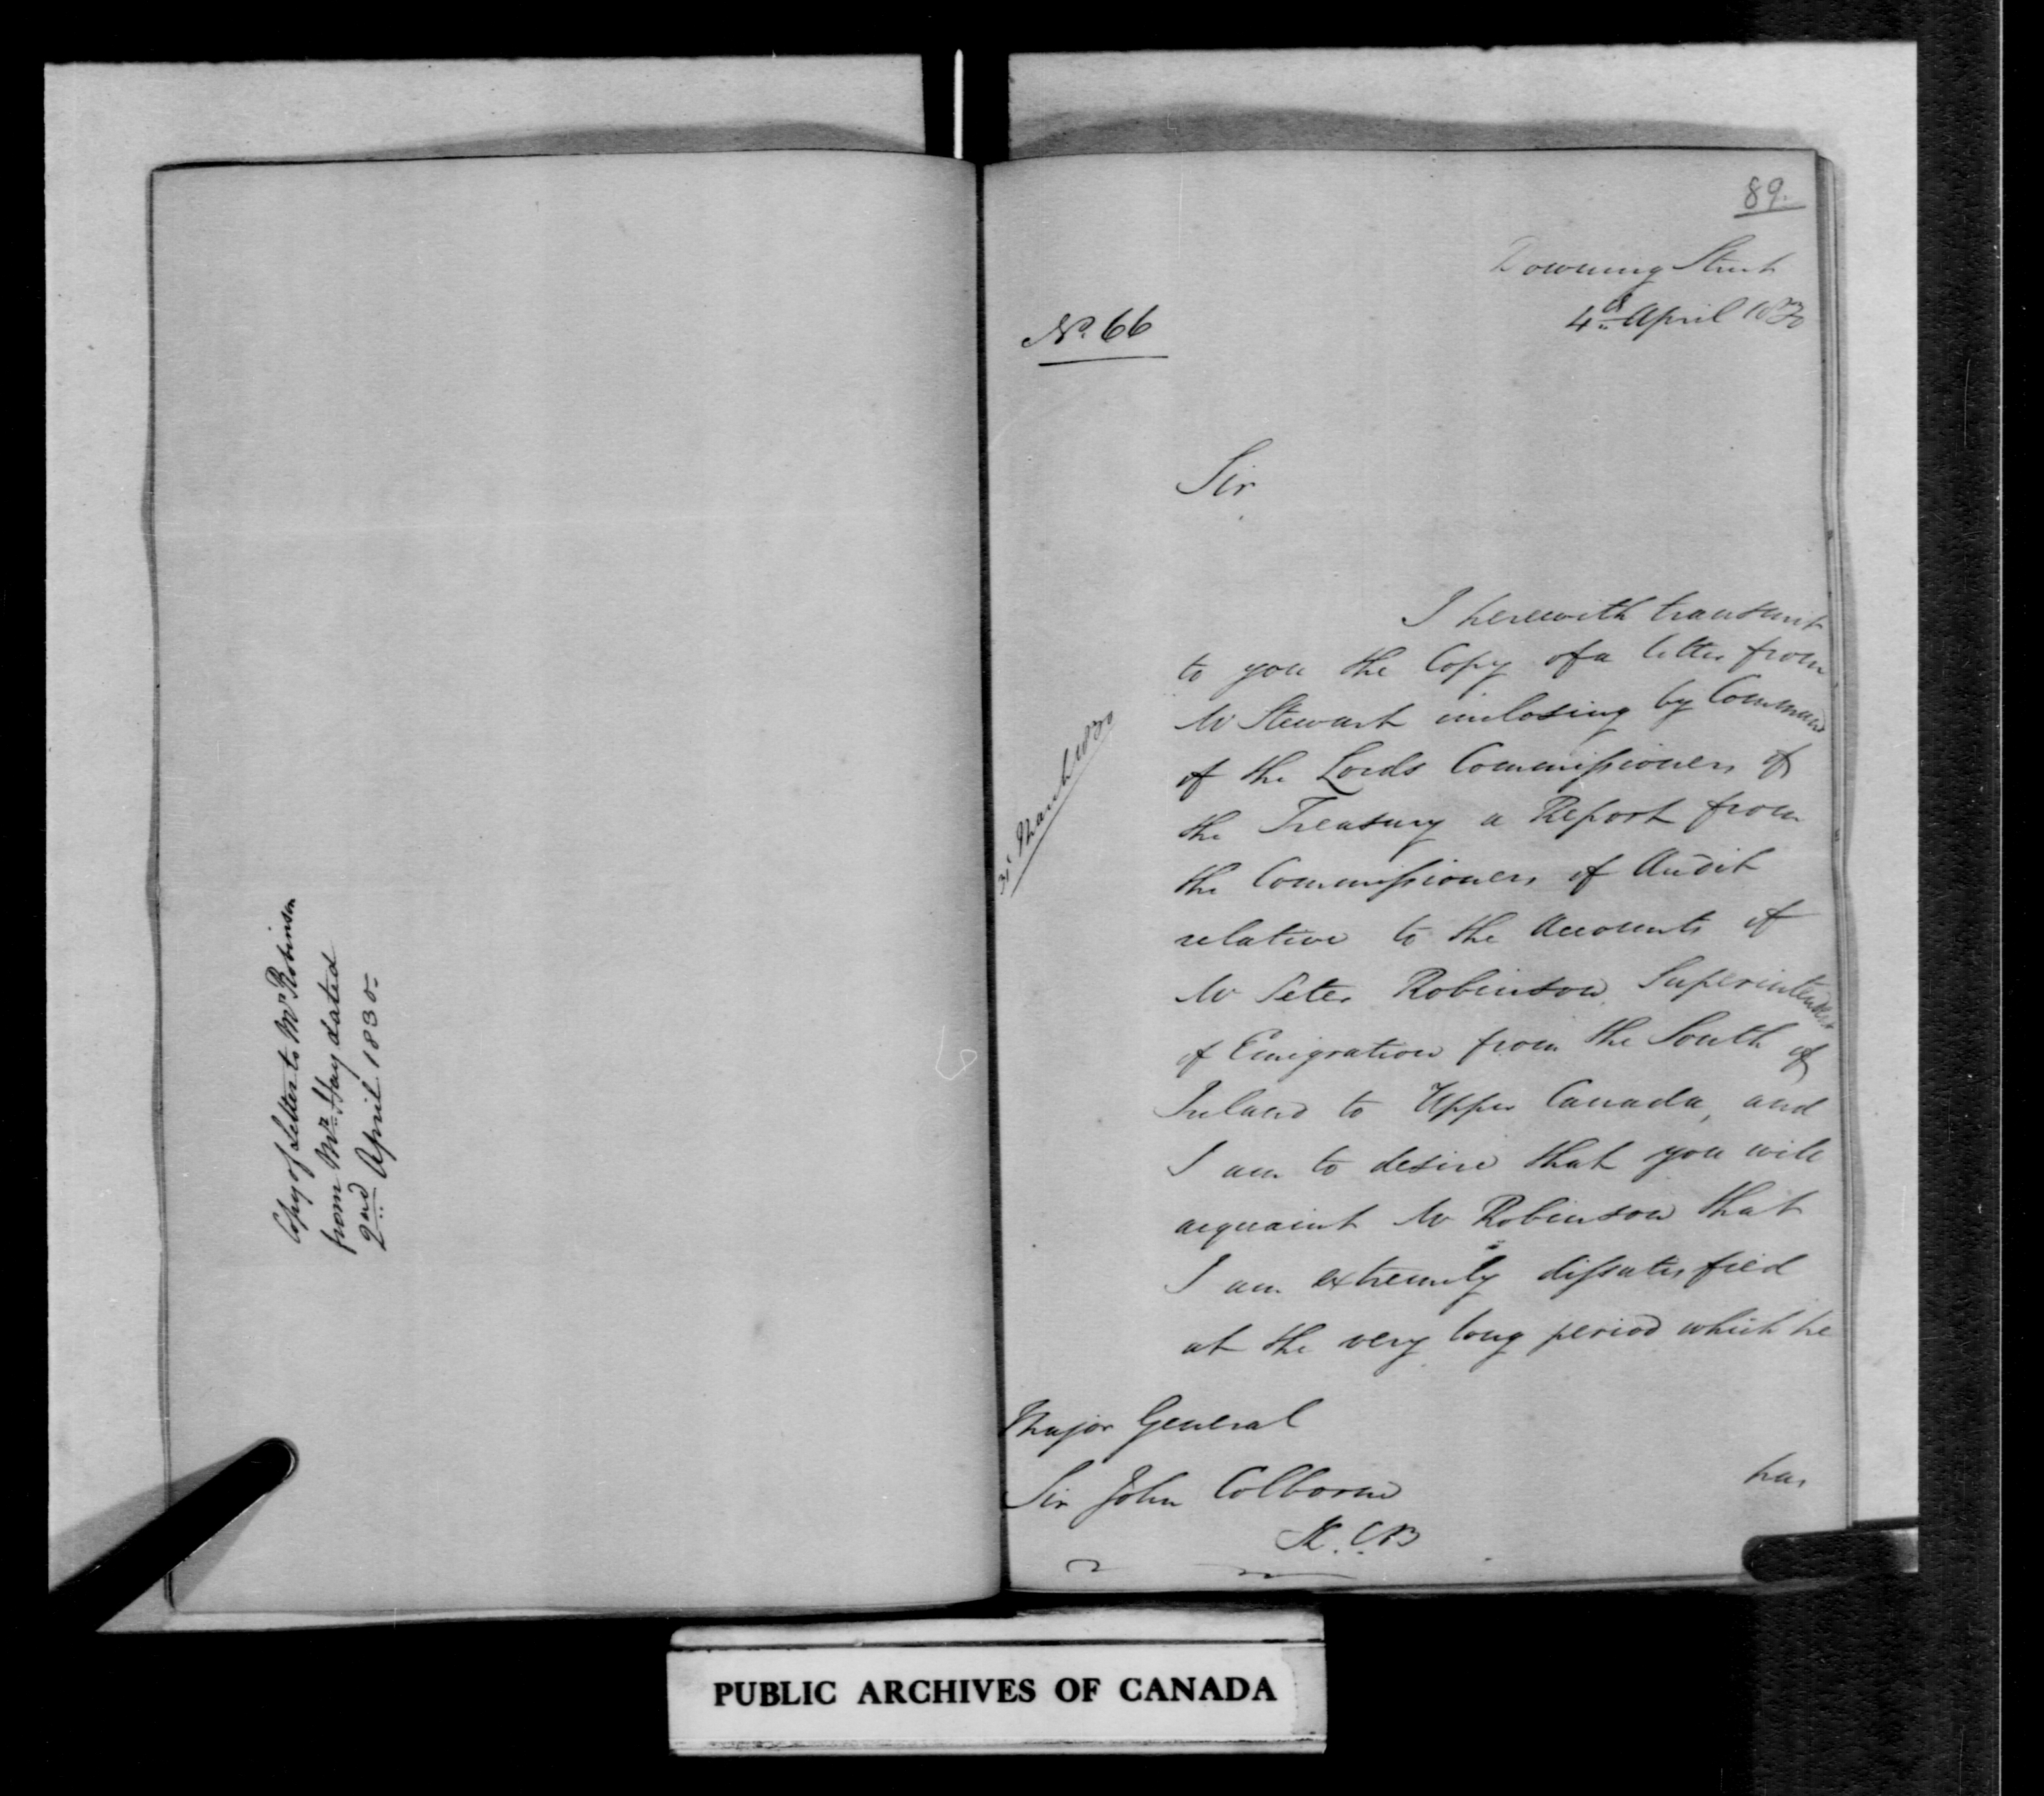 Copy of Letter to Mr Robinson
from Mr Hay dated
2nd April 1830-
89.
Downing Street
4th April 1830
No. 66
Sir
I herewith transmit
to you the Copy of a letter from
31 March 1830
Mr Stewart inclosing by Command
of the Lords Commissioners of
the Treasury a Report from
the Commissioners of Audit
relative to the Accounts of
Mr Peter Robinson, Superintendent
of Emigration from the South of
Ireland to Upper Canada, and
I am to desire that you will
acquaint Mr Robinson that
I am extremely dissatisfied
at the very long period which he
Major General
Sir John Colborne
K.C.B
has
PUBLIC ARCHIVES OF CANADA